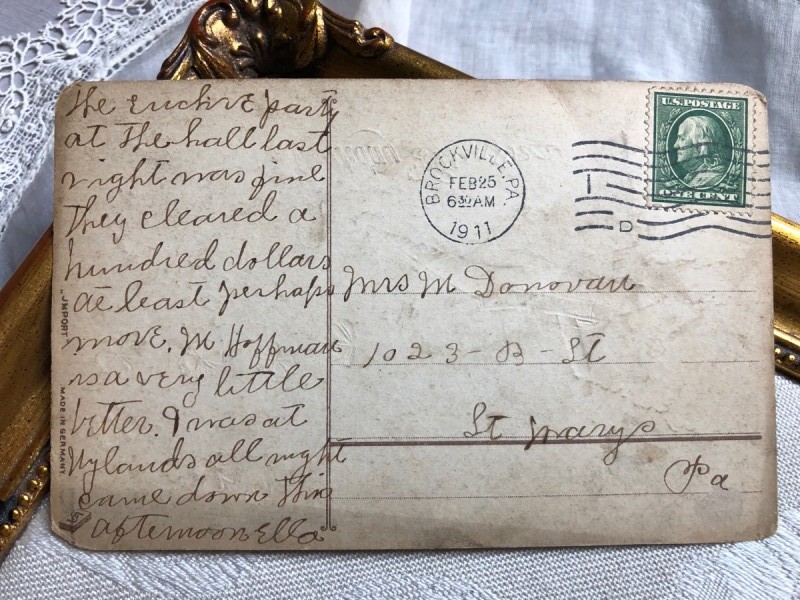 The euchre party
at the hall last
night was fine
they cleared a
hundred dollars
at least perhaps
more. M Hoffman
is a very little
better. I was at
Hylands all night
came down this
afternoon Ella
"JMPORT
MADE IN GERMANY
BROCKVILLE, PA.
FEB 25
6 30 AM
1911
1
D
U.S. POSTAGE
ONE CENT
Mrs M Donovan
1023 - B - St
St Marys
Pa